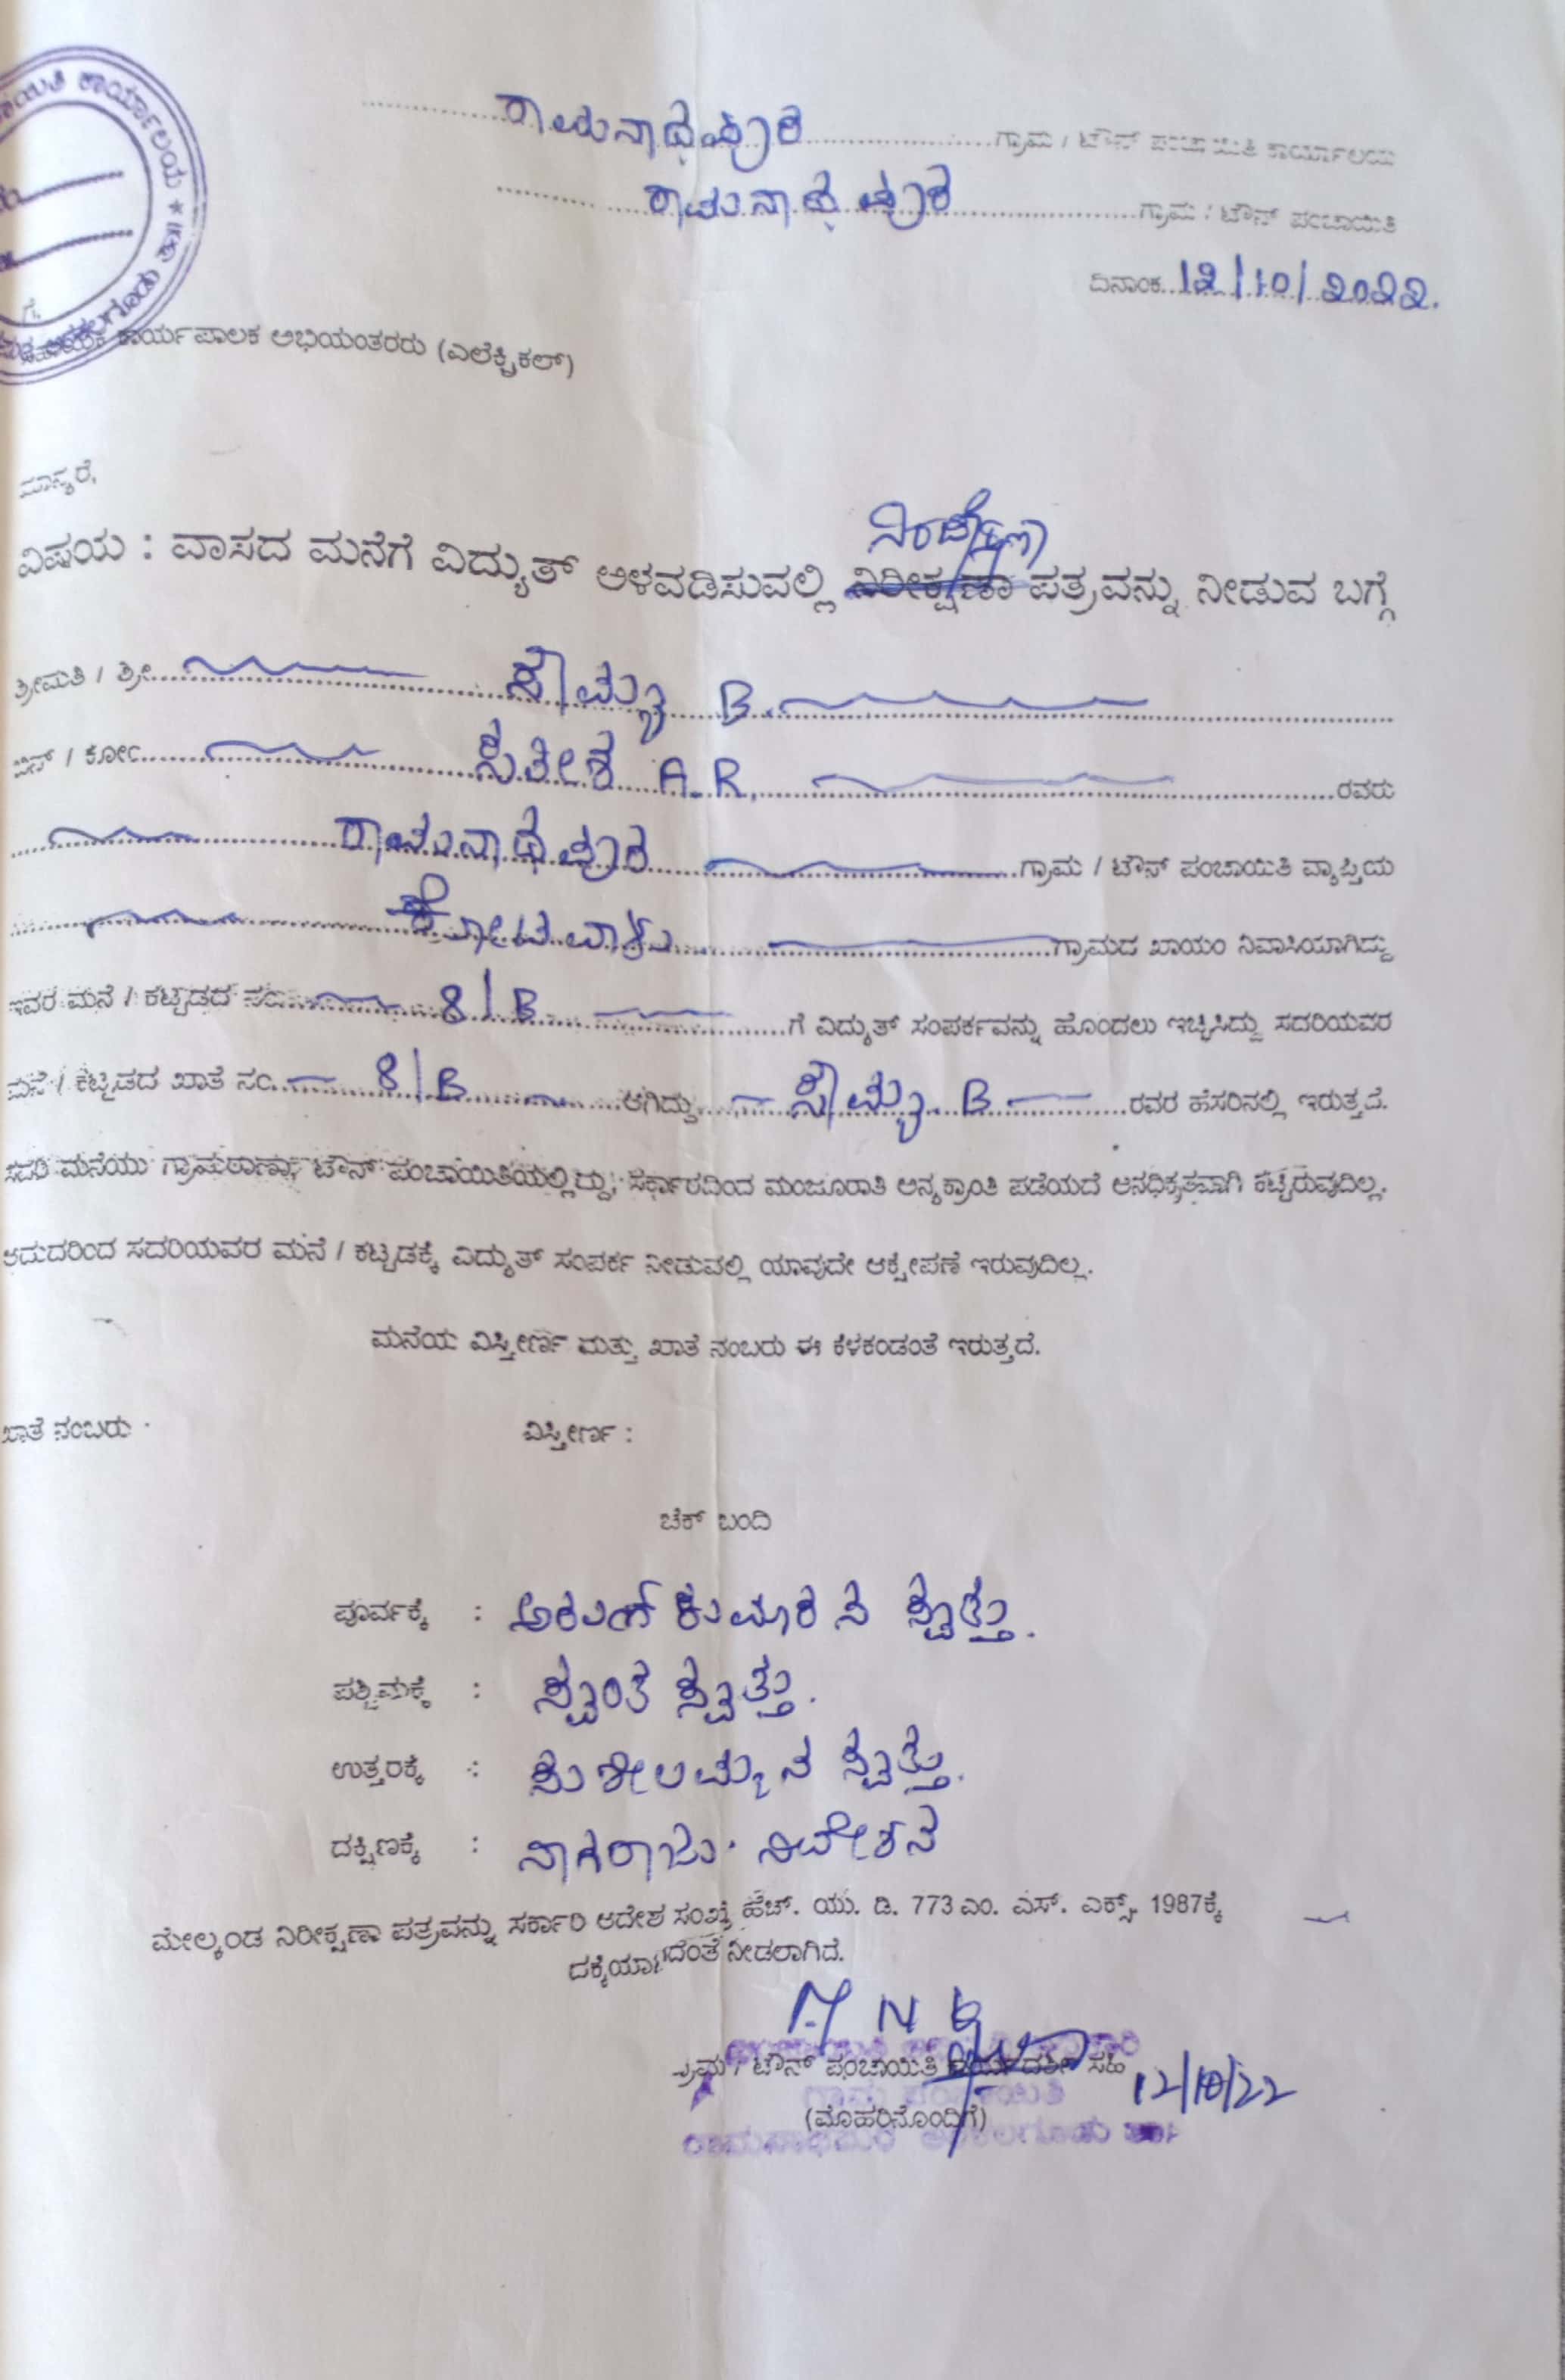 ಕಾರ್ಯಾಲಯ ★
ರಾಮನಾಥಪುರ ಗ್ರಾಮ / ಟೌನ್ ಪಂಚಾಯಿತಿ ಕಾರ್ಯಾಲಯ
ರಾಮನಾಥಪುರ ಗ್ರಾಮ / ಟೌನ್ ಪಂಚಾಯಿತಿ
ದಿನಾಂಕ 12/10/2022.
ಗೆ,
ಕಾರ್ಯಪಾಲಕ ಅಭಿಯಂತರರು (ಎಲೆಕ್ಟ್ರಿಕಲ್)
ಮಾನ್ಯರೆ,
ವಿಷಯ : ವಾಸದ ಮನೆಗೆ ವಿದ್ಯುತ್ ಅಳವಡಿಸುವಲ್ಲಿ ನಿರೀಕ್ಷಣಾ ಪತ್ರವನ್ನು ನೀಡುವ ಬಗ್ಗೆ
ಶ್ರೀಮತಿ / ಶ್ರೀ ಸೌಮ್ಯ B.
ಬಿನ್ / ಕೋಂ ಸತೀಶ A.R. ರವರು
ರಾಮನಾಥಪುರ ಗ್ರಾಮ / ಟೌನ್ ಪಂಚಾಯಿತಿ ವ್ಯಾಪ್ತಿಯ
ಕೋಟವಾಳು ಗ್ರಾಮದ ಖಾಯಂ ನಿವಾಸಿಯಾಗಿದ್ದು
ಇವರ ಮನೆ / ಕಟ್ಟಡದ ನಂ. 8/B ಗೆ ವಿದ್ಯುತ್ ಸಂಪರ್ಕವನ್ನು ಹೊಂದಲು ಇಚ್ಛಿಸಿದ್ದು ಸದರಿಯವರ
ಮನೆ / ಕಟ್ಟಡದ ಖಾತೆ ನಂ. 8/B ಆಗಿದ್ದು, ಸೌಮ್ಯ. B ರವರ ಹೆಸರಿನಲ್ಲಿ ಇರುತ್ತದೆ.
ಸದರಿ ಮನೆಯು ಗ್ರಾಮಠಾಣಾ, ಟೌನ್ ಪಂಚಾಯಿತಿಯಲ್ಲಿದ್ದು, ಸರ್ಕಾರದಿಂದ ಮಂಜೂರಾತಿ ಅನ್ಯಕ್ರಾಂತಿ ಪಡೆಯದೆ ಅನಧಿಕೃತವಾಗಿ ಕಟ್ಟಿರುವುದಿಲ್ಲ.
ಆದುದರಿಂದ ಸದರಿಯವರ ಮನೆ / ಕಟ್ಟಡಕ್ಕೆ ವಿದ್ಯುತ್ ಸಂಪರ್ಕ ನೀಡುವಲ್ಲಿ ಯಾವುದೇ ಆಕ್ಷೇಪಣೆ ಇರುವುದಿಲ್ಲ.
ಮನೆಯ ವಿಸ್ತೀರ್ಣ ಮತ್ತು ಖಾತೆ ನಂಬರು ಈ ಕೆಳಕಂಡಂತೆ ಇರುತ್ತದೆ.
ಖಾತೆ ನಂಬರು ವಿಸ್ತೀರ್ಣ :
ಚೆಕ್ ಬಂದಿ
ಪೂರ್ವಕ್ಕೆ : ಅರುಣ್ ಕುಮಾರ ನ ಸ್ವತ್ತು.
ಪಶ್ಚಿಮಕ್ಕೆ : ಸ್ವಂತ ಸ್ವತ್ತು.
ಉತ್ತರಕ್ಕೆ : ಸುಶೀಲಮ್ಮನ ಸ್ವತ್ತು.
ದಕ್ಷಿಣಕ್ಕೆ : ನಾಗರಾಜು. ನಿವೇಶನ
ಮೇಲ್ಕಂಡ ನಿರೀಕ್ಷಣಾ ಪತ್ರವನ್ನು ಸರ್ಕಾರಿ ಆದೇಶ ಸಂಖ್ಯೆ ಹೆಚ್. ಯು. ಡಿ. 773 ಎಂ. ಎಸ್. ಎಕ್ಸ್. 1987ಕ್ಕೆ
ದಕ್ಕೆಯಾಗದಂತೆ ನೀಡಲಾಗಿದೆ.
ಗ್ರಾಮ / ಟೌನ್ ಪಂಚಾಯಿತಿ ಕಾರ್ಯದರ್ಶಿ ಸಹಿ 12/10/22
(ಮೊಹರಿನೊಂದಿಗೆ)